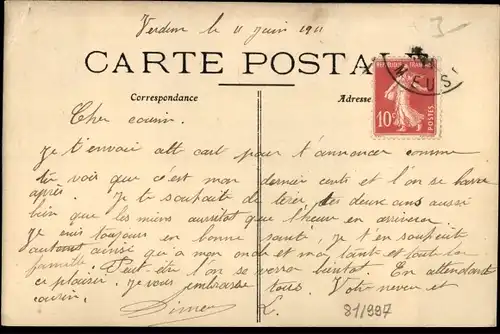 Verdun le 11 juin 1911
3
CARTE POSTALE
MEUSE
Correspondance
Adresse
REPUBLIQUE FRANÇAISE
10c
POSTES
Cher cousin.
Je t'envoi cart pour t'annoncer comme
tu vois que c'est mon dernier cent et l'on se barre
après. Je te souhaite de tirer deux ans aussi
bien que les miens aussitot que l'heure en arrivera.
Je suis toujours en bonne santé, je t'en souhait
autant ainsi qu'a mon oncle et ma tante et toute la
famille. Peut-être l'on se verra bientot. En attendant
ce plaisir je vous embrasse tous. Votre neveu et
cousin.
L.
81/997